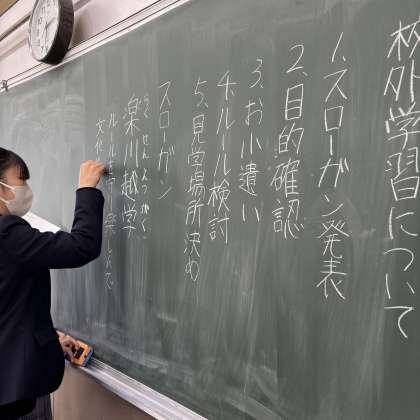 校外学習について
1.スローガン発表
2.目的確認
3.お小遣い
4.ルール検討
5.見学場所決め
スローガン
らくせんえつがく
楽川越学
楽しんで
文化